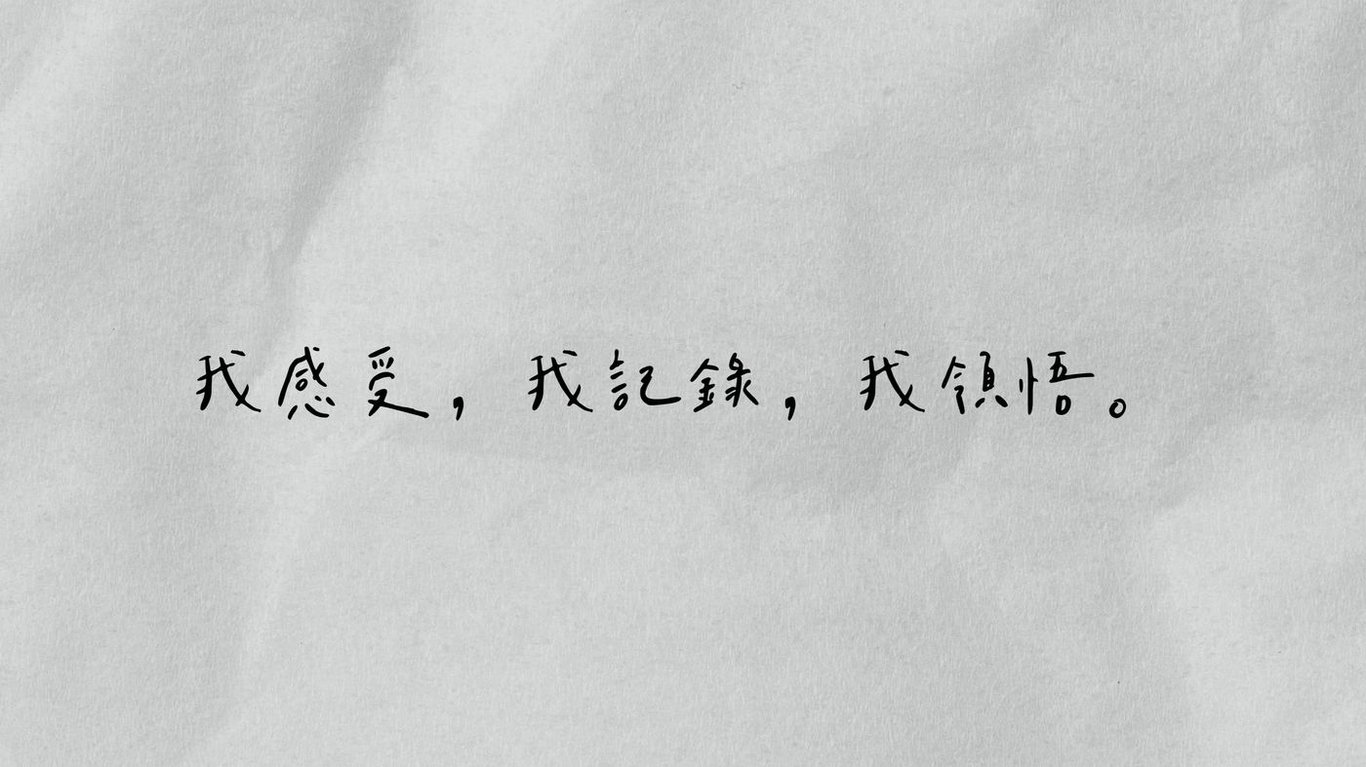 我感受，我記錄，我領悟。